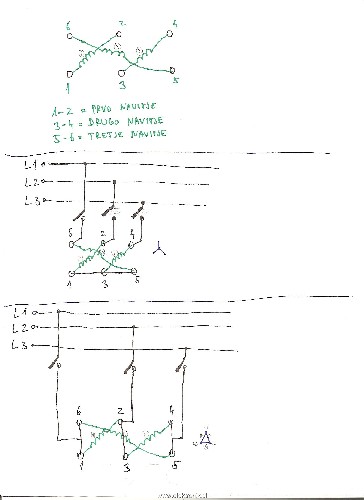 6 2 4
1 3 5
1-2 = PRVO NAVITJE
3-4 = DRUGO NAVITJE
5-6 = TRETJE NAVITJE
L1
L2
L3
6 2 4
1 3 5
L1
L2
L3
6 2 4
1 3 5